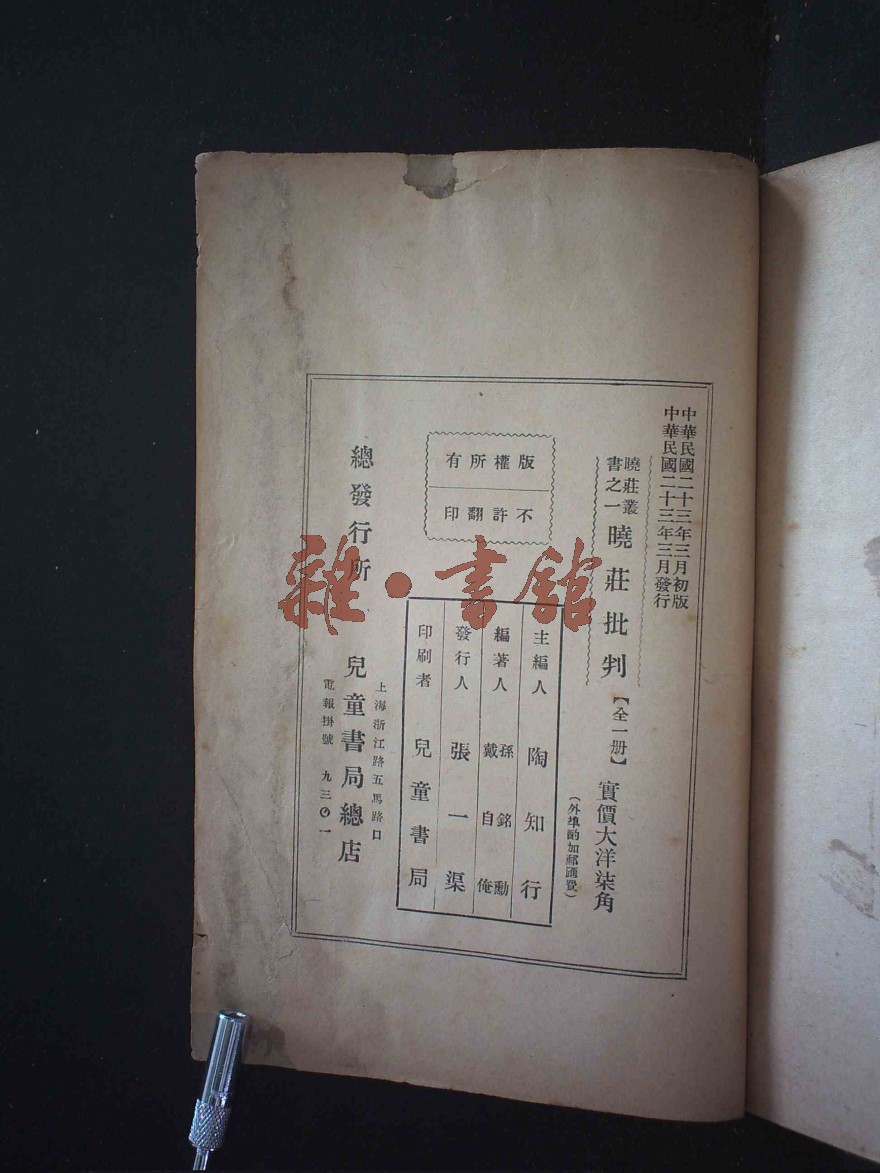 中華民國二十三年三月初版
中華民國二十三年三月發行
曉莊叢
書之一
曉莊批判
【全一册】
實價大洋柒角
(外埠酌加郵匯費)
版權所有
不許翻印
主編人 陶知行
編著人 孫銘勳 戴自俺
發行人 張一渠
印刷者 兒童書局
上海浙江路五馬路口
總發行所 兒童書局總店
電報掛號 九三〇一
雜·書館